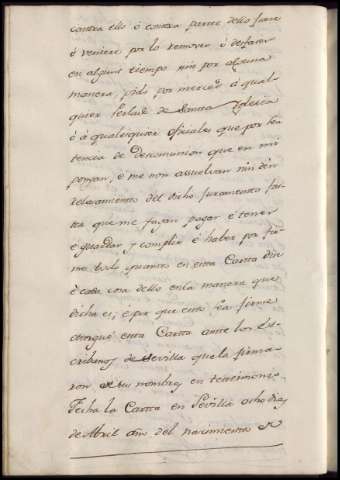 contra ello ó contra parte dello fuere
ó veniere por lo remover ó desfacer
en algunt tiempo nin por alguna
manera pido por merced á qual
quier Perlado de Santa Yglesia
ó á qualesquier oficiales que por sen
tencia de Descomunion que en mi
pongan, é me non assuelvan nin den
relaxamiento del dicho juramento fas
ta que me fagan pagar é tener
é guardar y complir é haber por fir
me todo quanto en esta Carta dice
é cada cosa dello en la manera que
dicha es, é por que esto sea firme
otorgué esta Carta ante los Es-
cribanos de Sevilla que la firma
ron de sus nombres en testimonio
Fecha la Carta en Sevilla ocho dias
de Abril año del nacimiento de